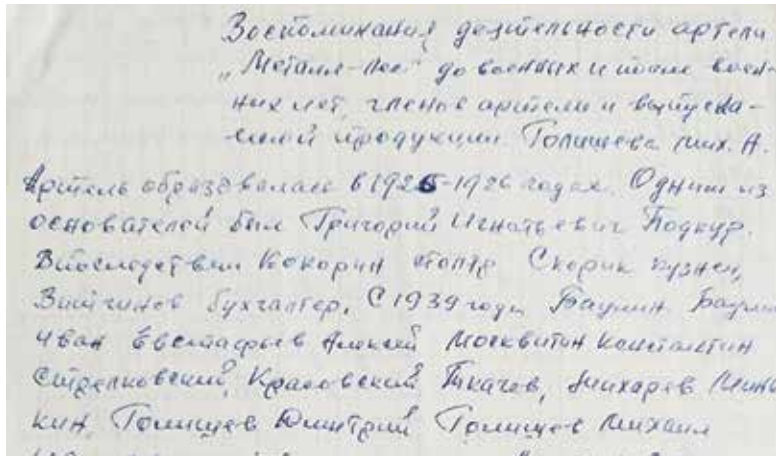 Воспоминания деятельности артели
„Металл-лес" до военных и после воен-
ных лет, членов артели и выпуска-
емой продукции Голищева Мих. А.
Артель образовалась в 1925-1926 годах. Одним из
основателей был Григорий Игнатьевич Подкур.
Впоследствии Кокорин столяр Скорик кузнец,
бухгалтер, С 1939 года Баулин
Иван Евстафьев Алексей Москвитин Константин
Стрелковский, Красовский Ткачев,
кин, Голищев Дмитрий Голищев Михаил